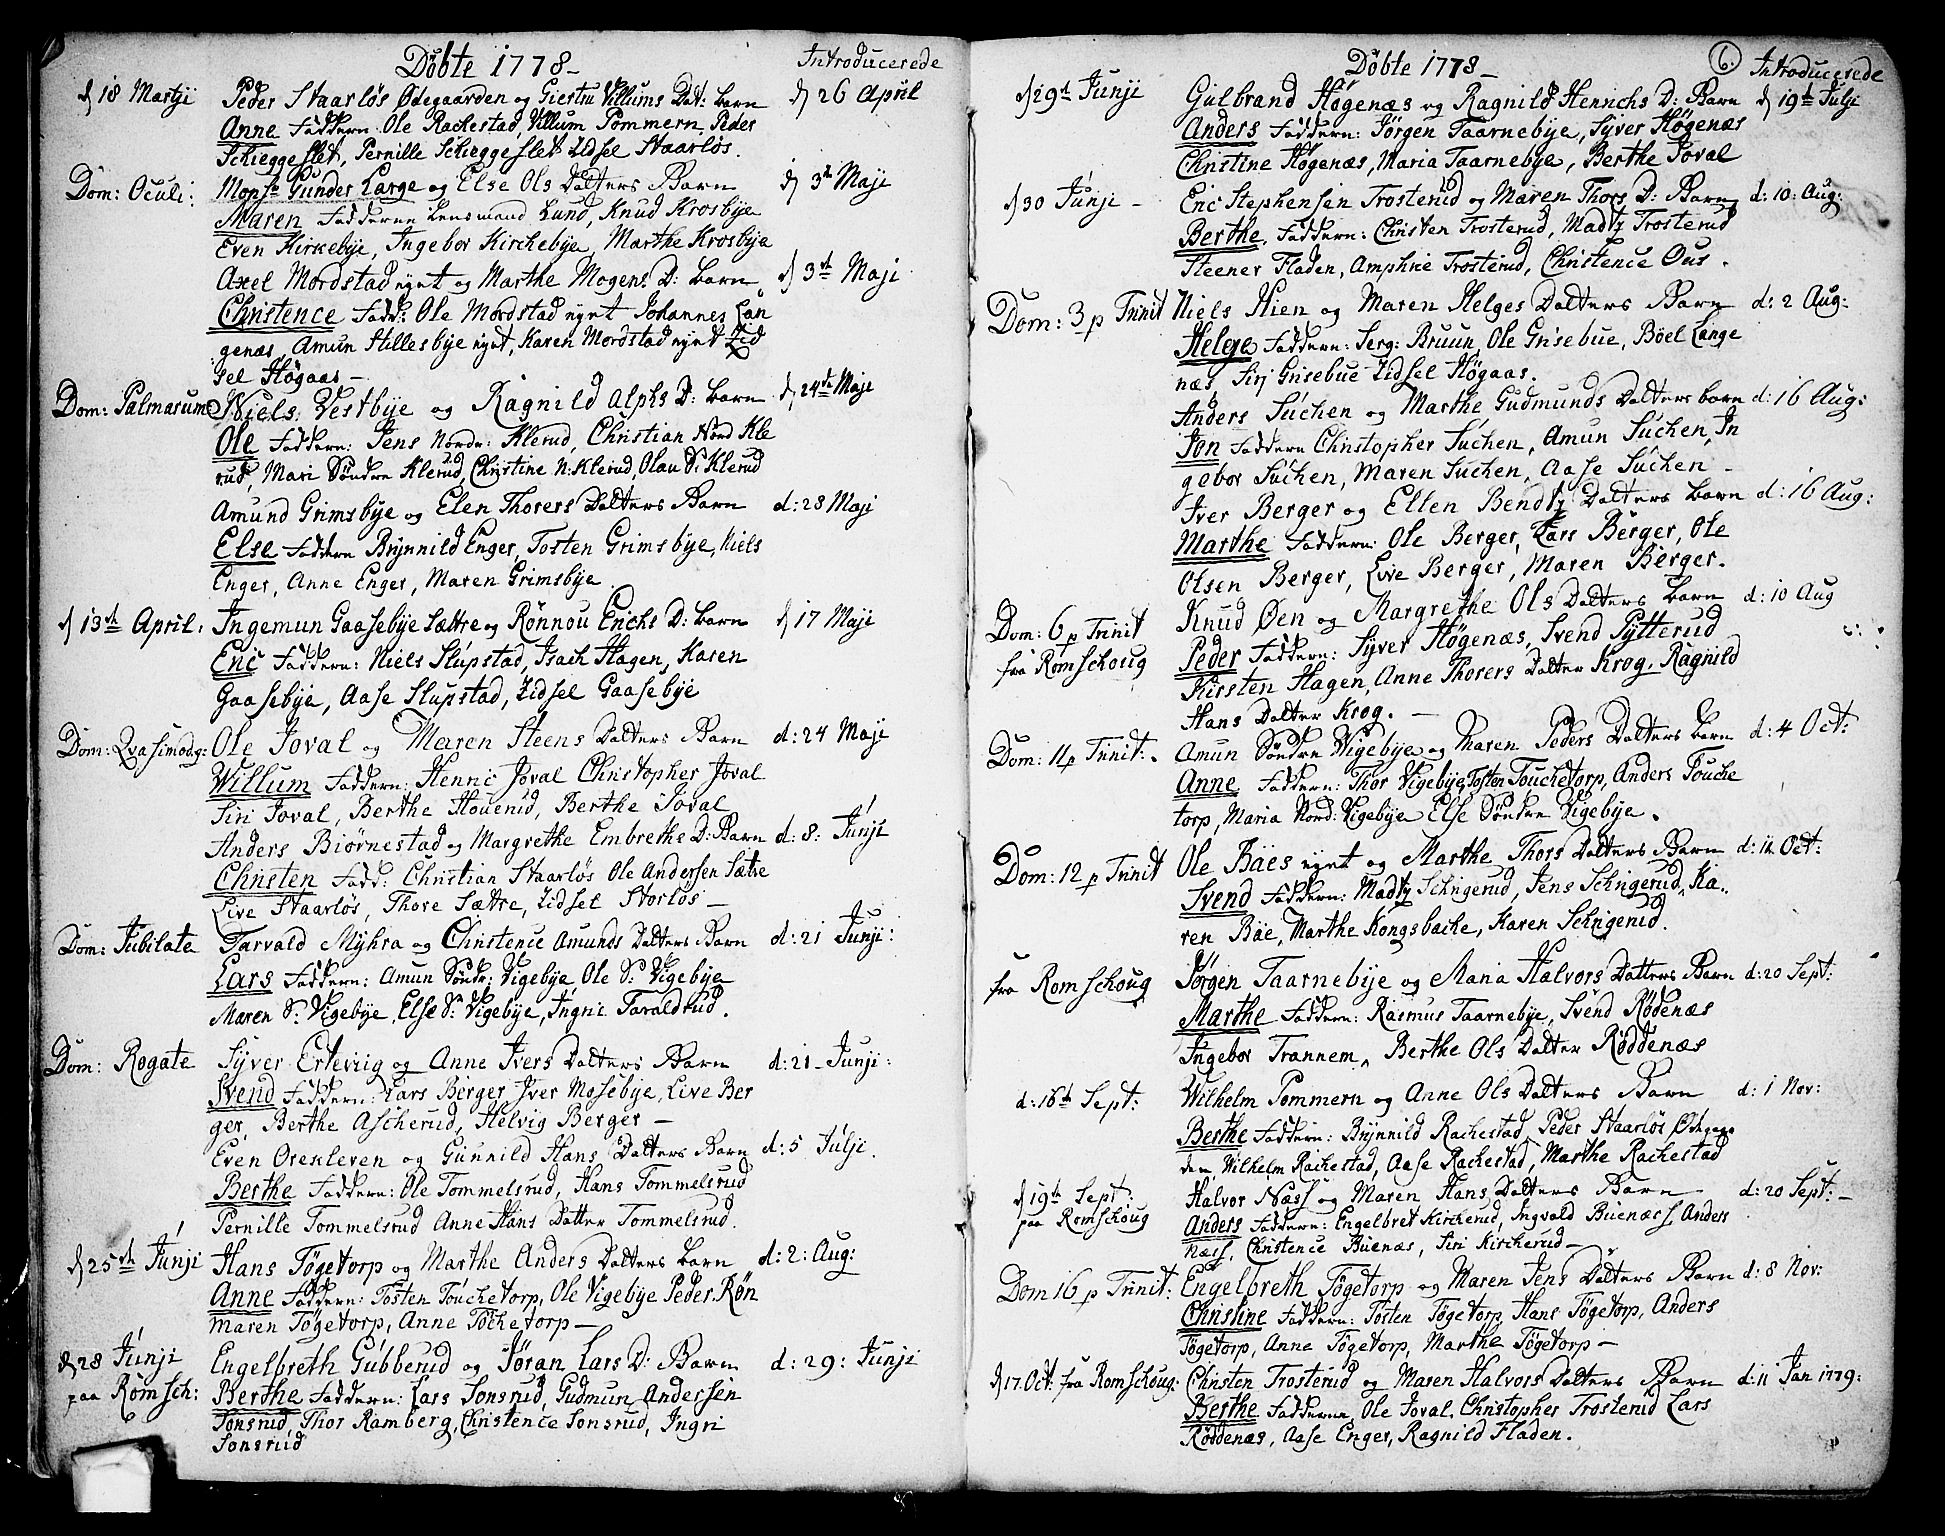 Döbte 1778 - Introducerede
d 18 Martji Peder Staarlös Ødegaarden og Giertru Villums Dat: barn d 26 April
Anne Faddern Ole Rackestad, Villum Pommern, Peder
Schieggeslet, Pernille Schieggeslet Zidsel Staarlös.
Dom: Oculi: Monsr Gunder Large og Else Ols Datters Barn d 3de Maji
Maren Fadderne Lensmand Lund, Knud Krosbye
Even Kirkebye, Ingebor Kirchebye, Marthe Krosbye
Axel Mordstad eyet og Marthe Mogens D: barn d 3de Maji
Christence Fadd: Ole Mordstad eyet Johannes Lan
genæs, Amun Hillesbye eyet, Karen Mordstad eyet Zid
sel Högaas -
Dom: Palmarum Niels Vestbye og Ragnild Alphs D: barn d 24de Maji
Ole Faddern: Jens Nordr: Klerud, Christian Nord Kle
rud, Mari Söndre Klerud, Christine N: Klerud, Olau S: Klerud
Amund Grimsbye og Elen Thorers Datters Barn d: 28 Maji
Else Faddern Brynnild Enger, Tosten Grimsbye, Niels
Enger, Anne Enger, Maren Grimsbye
d 13de April. Ingemun Gaasebye Sættre og Rönnou Erichs D: barn d 17 Maji
Eric Faddern: Niels Slupstad, Isach Hagen, Karen
Gaasebye, Aase Slupstad, Zidsel Gaasebye
Dom: Qvasimodg: Ole Joval og Maren Steens Datters Barn d: 24 Maji
Willum Faddern: Henric Joval Christopher Joval
Siri Joval, Berthe Houerud, Berthe Joval
Anders Biörnestad og Margrethe Embreths D: Barn d: 8: Junji
Christen Fadd: Christian Staarlös Ole Andersen Sætre
Live Staarlös, Thore Sættre, Zidsel Storlös -
Dom: Jubilate Tarvald Myhra og Christence Amunds Datters Barn d: 21 Junji:
Lars Faddern: Amun Söndr: Vigebye Ole S: Vigebye
Maren S: Vigebye, Else S: Vigebye, Ingri Taraldrud.
Dom: Rogate Syver Erteviig og Anne Ivers Datters Barn d: 21 - Junji:
Svend Faddern: Lars Berger Iver Mosebye, Live Ber
ger, Berthe Ascherud, Helvig Berger -
Even Orekleven og Gunnild Hans Datters Barn d: 5 Julji.
Berthe Faddern: Ole Tommelsrud, Hans Tommelsrud
Pernille Tommelsrud Anne Hans Datter Tommelsrud.
d 25de Junji Hans Tögetorp og Marthe Anders Datters barn d: 2: Aug:
Anne Faddern: Tosten Touchetorp, Ole Vigebye Peder Rön
Maren Tögetorp, Anne Töchetorp -
d 28 Junji Engelbreth Gubberud og Jöran Lars D: Barn d: 29: Junji
paa Römsch: Berthe Faddern: Lars Sonsrud, Gudmun Andersen
Sonsrud, Thor Ramberg, Christence Sonsrud, Ingri
Sonsrud
Döbte 1778 - 6. Introducerede
d 29de Junji Gulbrand Högenæs og Ragnild Henrichs D: Barn d 19de Julji
Anders Faddern: Jörgen Taarnebye, Syver Högenæs
Christine Högenæs, Maria Taarnebye, Berthe Joval
d 30 Junji - Eric Stephensen Trosterud og Maren Thors D: Barn d: 10: Aug:
Berthe. Faddern: Christen Trosterud, Madtz Trosterud
Steener Fladen, Amphrie Trosterud, Christence Ous.
Dom: 3 p Trinit Niels Hien og Maren Helges Datters Barn d: 2 Aug:
Helge Faddern: Serg: Bruun, Ole Grisebue, Böel Lange
næs Siri Grisebue Zidsel Högaas.
Anders Suchen og Marthe Gudmunds Datters barn d: 16 Aug:
Jon Faddern Christopher Suchen, Amun Suchen, In
gebor Suchen, Maren Suchen, Aase Suchen -
Iver Berger og Ellen Bendtz Datters barn d: 16 Aug:
Marthe Faddern: Ole Berger, Lars Berger, Ole
Olsen Berger, Live Berger, Maren Berger.
Dom: 6 p Trinit Knud Øen og Margrethe Ols Datters barn d: 10 Aug
fra Römschoug Peder Faddern: Syver Högenæs, Svend Pytterud
Kirsten Hagen, Anne Thorers Datter Krog, Ragnild
Hans Datter Krog. -
Dom: 11 p Trinit: Amun Söndre Vigebye og Maren Peders Datters barn d: 4 Oct:
Anne Faddern: Thor Vigebye, Tosten Touchetorp, Anders Touche
torp, Maria Nord: Vigebye Else Söndre Vigebye.
Dom: 12 p Trinit Ole Bäes eyet og Marthe Thors Datters Barn d: 11 Oct:
Svend Faddern: Madtz Schrigerud, Jens Schrigerud, Ka
ren Bäe, Marthe Kongsbache, Karen Schrigerud.
fra Romschoug Jörgen Taarnebye og Maria Halvors Datters Barn d: 20 Sept:
Marthe Faddern: Rasmus Taarnebye, Svend Rödenæs
Ingebor Trannem, Berthe Ols Datter Röddenæs
d: 16de Sept: Wilhelm Pommern og Anne Ols Datters Barn d: 1 Nov:
Berthe Faddern: Brynnild Rackestad Peder Staarlös Ødegaar
den, Wilhelm Rackestad, Aase Rackestad, Marthe Rackestad
d 19de Sept: Halvor Næss og Maren Hans Datters Barn d: 20 Sept: -
paa Romschoug Anders Faddern: Engelbret Kircherud, Ingvald Buenæss, Anders
Næss, Christence Buenæs, Siri Kircherud -
Dom 16 p Trinit: Engelbreth Tögetorp og Maren Jens Datters Barn d: 8 Nov:
Christine Faddern: Tosten Tögetorp, Hans Tögetorp, Anders
Tögetorp, Anne Tögetorp, Marthe Tögetorp -
d 17. Oct. fra Romschoug: Christen Trosterud og Maren Halvors Datters Barn d: 11 Jan 1779:
Berthe Fadderne, Ole Joval, Christopher Trosterud Lars
Röddenæs, Aase Enger, Ragnild Fladen.